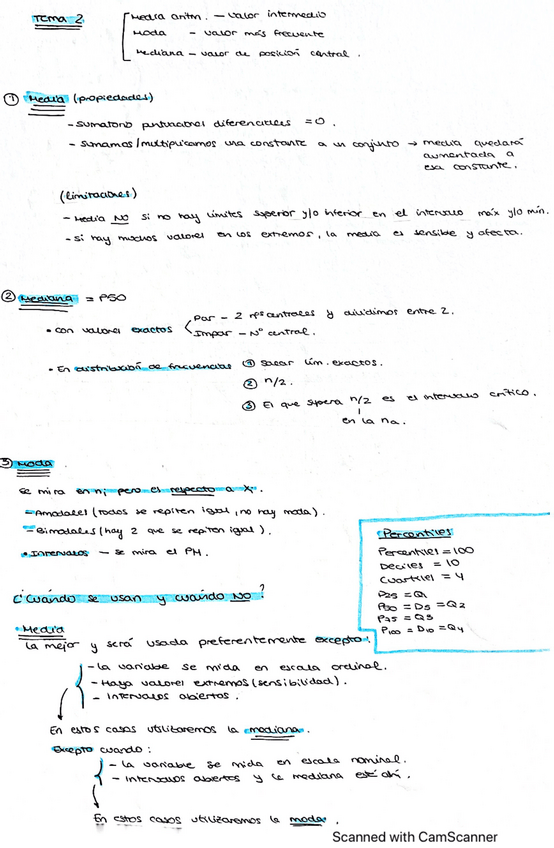 Tema 2
Media aritm. — valor intermedio
Moda — valor más frecuente
Mediana — valor de posición central.
① Media (propiedades)
- Sumatorio puntuaciones diferenciales = 0.
- Sumamos/multiplicamos una constante a un conjunto → media quedará
aumentada a
esa constante.
(limitaciones)
- Media NO si no hay límites superior y/o inferior en el intervalo máx y/o mín.
- Si hay muchos valores en los extremos, la media es sensible y afecta.
② Mediana = P50
• Con valores exactos
Par - 2 nºs centrales y dividimos entre 2.
Impar - Nº central.
• En distribución de frecuencias ① Sacar lím. exactos.
② n/2.
③ El que supera n/2 es el intervalo crítico.
en la na.
③ Moda.
Se mira en ni pero es respecto a Xi.
- Amodales (todos se repiten igual, no hay moda).
- Bimodales (hay 2 que se repiten igual).
• Intervalos — se mira el PM.
Percentiles
Percentiles = 100
Deciles = 10
Cuartiles = 4
P25 = Q1
P50 = D5 = Q2
P75 = Q3
P100 = D10 = Q4
¿Cuándo se usan y cuándo NO?
• Media
La mejor y será usada preferentemente excepto:
- La variable se mida en escala ordinal.
- Haya valores extremos (sensibilidad).
- Intervalos abiertos.
En estos casos utilizaremos la mediana.
Excepto cuando:
- La variable se mida en escala nominal.
- Intervalos abiertos y la mediana esté ahí.
En estos casos utilizaremos la moda.
Scanned with CamScanner